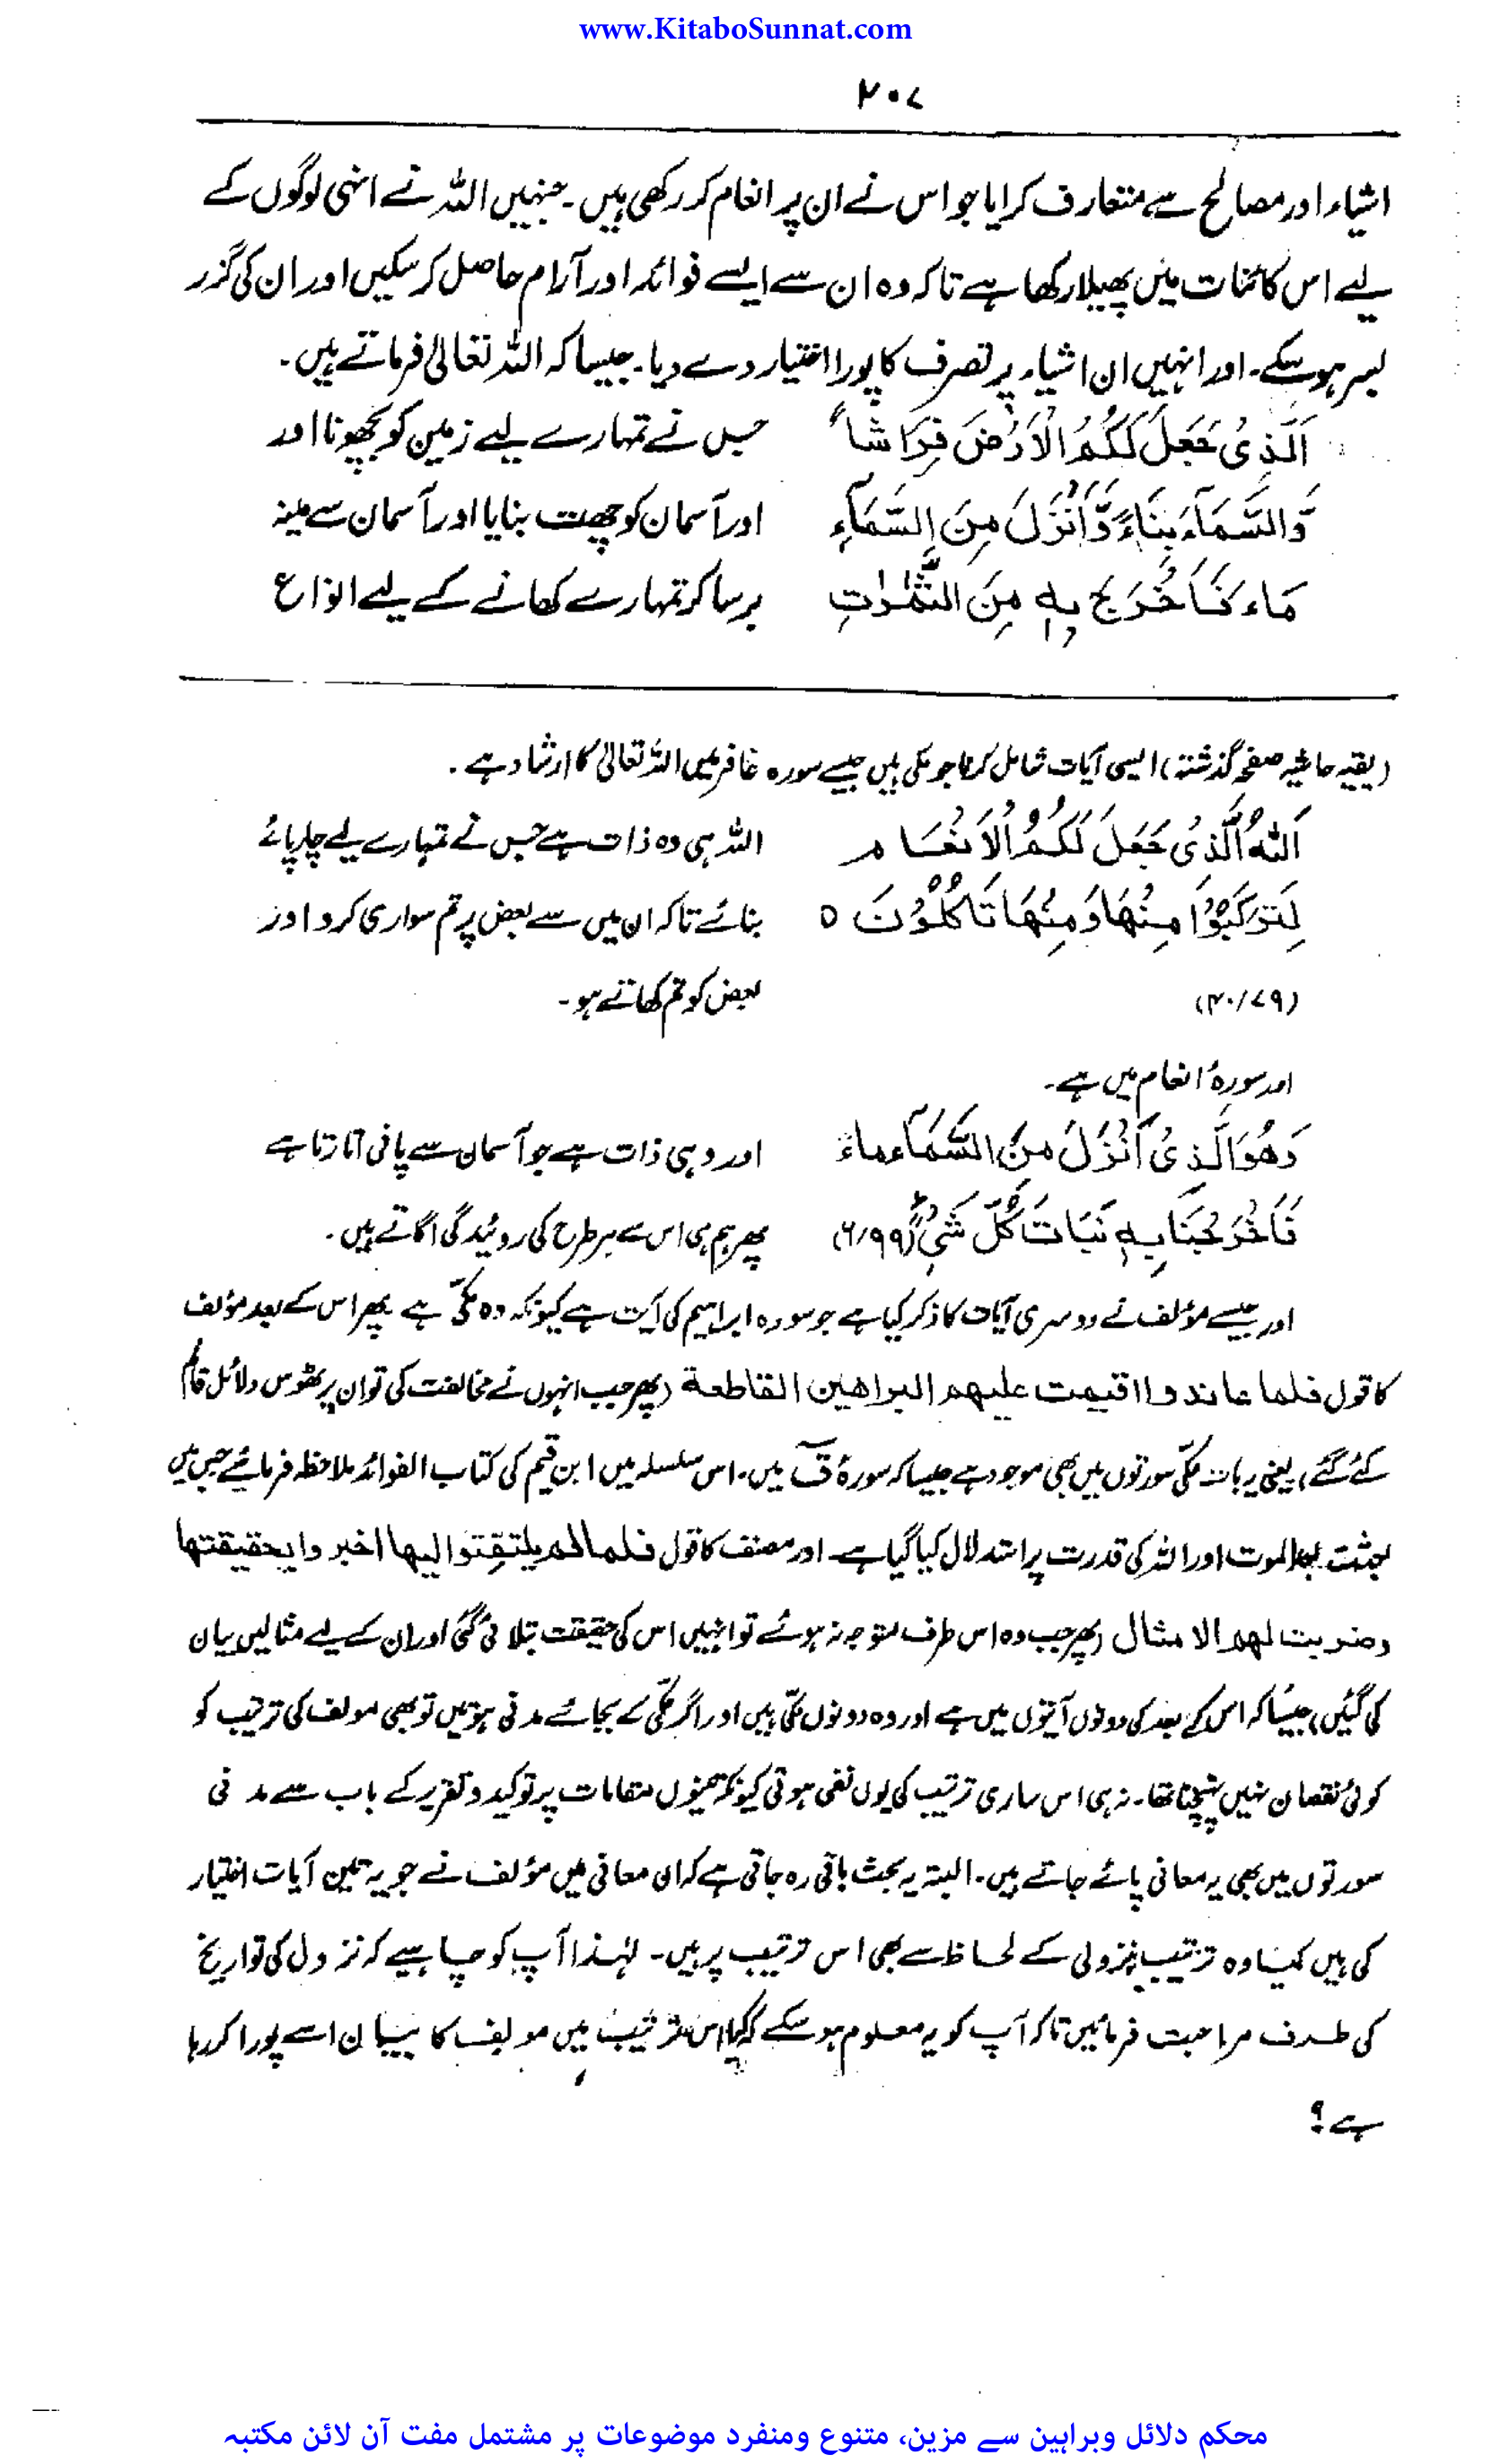 www.KitaboSunnat.com
۲۰۷
اشیاء اور مصالح سے متعارف کرایا جو اس نے ان پر انعام کر رکھی ہیں۔ جنہیں اللہ نے انہی لوگوں کے
لیے اس کائنات میں پھیلا رکھا ہے تاکہ وہ ان سے ایسے فوائد اور آرام حاصل کر سکیں اور ان کی گزر
بسر ہو سکے۔ اور انہیں ان اشیاء پر تصرف کا پورا اختیار دے دیا۔ جیسا کہ اللہ تعالیٰ فرماتے ہیں۔
اَلَّذِیْ جَعَلَ لَكُمُ الْاَرْضَ فِرَاشًا جس نے تمہارے لیے زمین کو بچھونا اور
وَّالسَّمَآءَ بِنَآءً وَّاَنْزَلَ مِنَ السَّمَآءِ اور آسمان کو چھت بنایا اور آسمان سے مینہ
مَاءً فَاَخْرَجَ بِهٖ مِنَ الثَّمَرٰتِ برسا کر تمہارے کھانے کے لیے انواع
(بقیہ حاشیہ صفحہ گذشتہ) ایسی آیات شامل کرنا جو مکی ہیں جیسے سورہ غافر میں اللہ تعالیٰ کا ارشاد ہے۔
اَللّٰهُ الَّذِیْ جَعَلَ لَكُمُ الْاَنْعَامَ اللہ ہی وہ ذات ہے جس نے تمہارے لیے چارپائے
لِتَرْكَبُوْا مِنْهَا وَمِنْهَا تَاْكُلُوْنَ ٥ بنائے تاکہ ان میں سے بعض پر تم سواری کرو اور
(۴۰/۷۹) بعض کو تم کھاتے ہو۔
اور سورۂ انعام میں ہے۔
وَهُوَ الَّذِیْ اَنْزَلَ مِنَ السَّمَآءِ مَاءً اور وہی ذات ہے جو آسمان سے پانی اتارتا ہے
فَاَخْرَجْنَا بِهٖ نَبَاتَ كُلِّ شَیْءٍ (۶/۹۹) پھر ہم ہی اس سے ہر طرح کی روئیدگی اگاتے ہیں۔
اور جیسے مؤلف نے دوسری آیات کا ذکر کیا ہے جو سورہ ابراہیم کی آیت ہے کیونکہ وہ مکّی ہے پھر اس کے بعد مؤلف
کا قول فلما عاندوا اقیمت علیهم البراهین القاطعة (پھر جب انہوں نے مخالفت کی تو ان پر ٹھوس دلائل قائم
کئے گئے) یعنی یہ بات مکّی سورتوں میں بھی موجود ہے جیسا کہ سورۂ قٓ میں۔ اس سلسلہ میں ابن قیم کی کتاب الفوائد ملاحظہ فرمائیے جس میں
بعثت بعد الموت اور اللہ کی قدرت پر استدلال کیا گیا ہے۔ اور مصنف کا قول فلما لم یلتفتوا الیها اخبروا بحقیقتها
وضربت لهم الامثال (پھر جب وہ اس طرف متوجہ نہ ہوئے تو انہیں اس کی حقیقت بتلائی گئی اور ان کے لیے مثالیں بیان
کی گئیں) جیسا کہ اس کے بعد کی دونوں آیتوں میں ہے اور وہ دونوں مکّی ہیں اور اگر مکّی کے بجائے مدنی ہوتیں تو بھی مولف کی ترتیب کو
کوئی نقصان نہیں پہنچتا تھا۔ نہ ہی اس ساری ترتیب کی یوں نفی ہوتی کیونکہ تینوں مقامات پر توکید و تقریر کے باب سے مدنی
سورتوں میں بھی یہ معانی پائے جاتے ہیں۔ البتہ یہ بحث باقی رہ جاتی ہے کہ ان معانی میں مؤلف نے جو یہ تین آیات اختیار
کی ہیں کیا وہ ترتیب نزولی کے لحاظ سے بھی اس ترتیب پر ہیں۔ لہٰذا آپ کو چاہیے کہ نزول کی تواریخ
کی طرف مراجعت فرمائیں تاکہ آپ کو یہ معلوم ہو سکے کہ کیا اس ترتیب میں مولف کا بیان اسے پورا کر رہا
ہے؟
محکم دلائل وبراہین سے مزین، متنوع ومنفرد موضوعات پر مشتمل مفت آن لائن مکتبہ